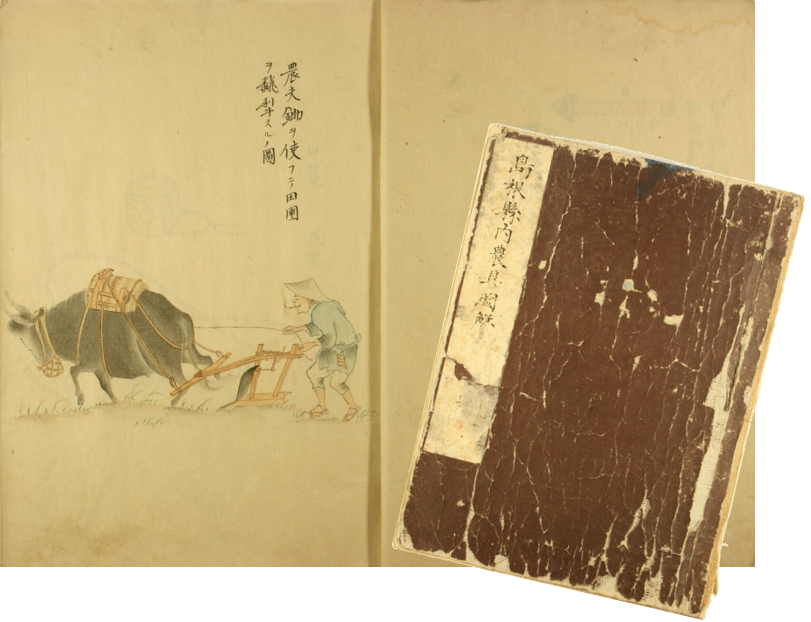 農夫鋤ヲ使フテ田圃
ヲ耕犂スルノ圖
島根縣内農具圖解